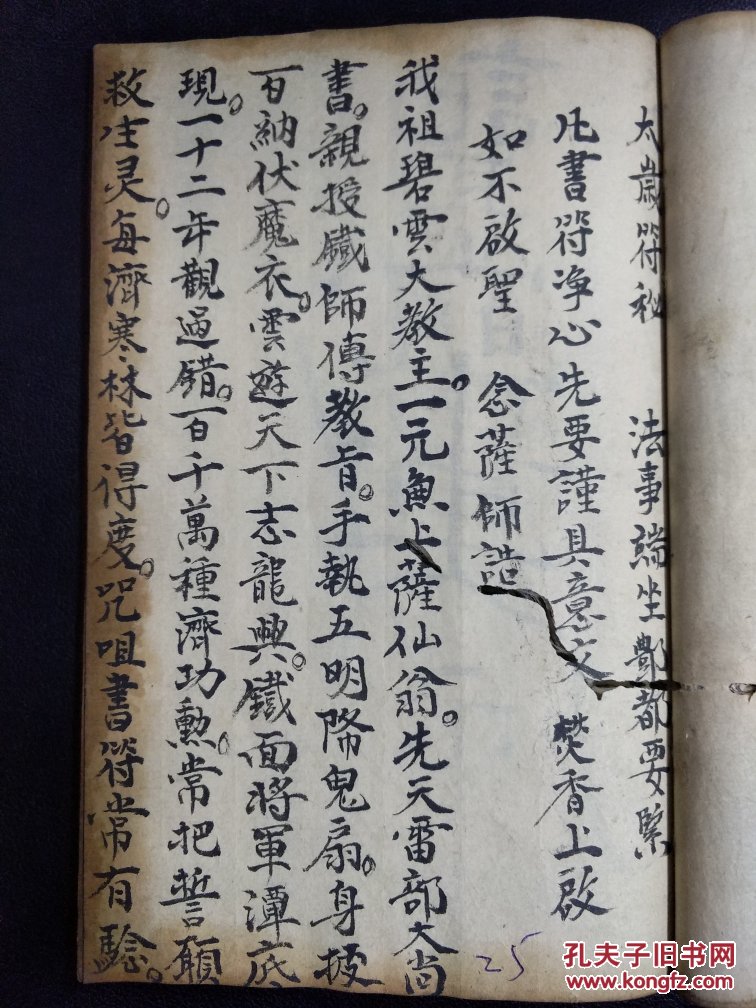 太歲符秘 法事端坐酆都要緊
凡書符净心先要謹具意文 焚香上啟
如不啟聖 念薩師誥
我祖碧雲大教主。一元魚上薩仙翁。先天雷部大尚
書。親授鐵師傳教旨。手執五明降鬼扇。身披
百納伏魔衣。雲遊天下志龍興。鐵面将軍潭底
現。一十二年觀過錯。百千萬種濟功勲。常把誓願
救生灵。每濟寒林皆得度。咒咀書符常有驗。
25
孔夫子旧书网
www.kongfz.com